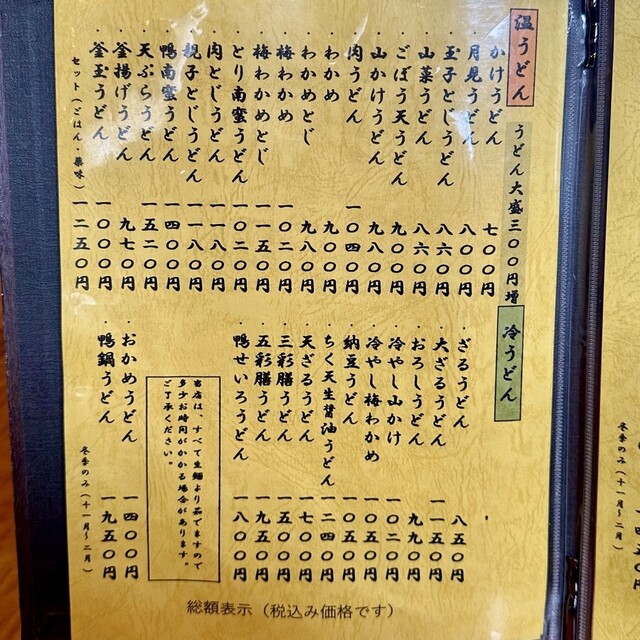 温うどん
うどん大盛三〇〇円増
・かけうどん 七〇〇円
・月見うどん 八〇〇円
・玉子とじうどん 八六〇円
・山菜うどん 八六〇円
・ごぼう天うどん 九〇〇円
・山かけうどん 九八〇円
・肉うどん 一〇四〇円
・わかめ 九〇〇円
・わかめとじ 九八〇円
・梅わかめ 一〇二〇円
・梅わかめとじ 一一五〇円
・とり南蛮うどん 一〇二〇円
・肉とじうどん 一一八〇円
・親子とじうどん 一一八〇円
・鴨南蛮うどん 一四〇〇円
・天ぷらうどん 一五二〇円
・釜揚げうどん 九七〇円
・釜玉うどん 一〇〇〇円
セット(ごはん・薬味) 一二五〇円
冷うどん
・ざるうどん 八五〇円
・大ざるうどん 一一五〇円
・おろしうどん 九九〇円
・冷やし山かけ 一〇二〇円
・冷やし梅わかめ 一〇五〇円
・納豆うどん 一〇五〇円
・ちく天生醤油うどん 一二四〇円
・天ざるうどん 一七〇〇円
・三彩膳うどん 一五〇〇円
・五彩膳うどん 一九五〇円
・鴨せいろうどん 一八〇〇円
当店は、すべて生麺より茹でますので
多少お時間がかかる場合があります。
ご了承ください。
・おかめうどん 一四〇〇円
・鴨鍋うどん 一九五〇円
冬季のみ(十一月〜二月)
総額表示（税込み価格です）
冬季のみ(十一月〜二月)